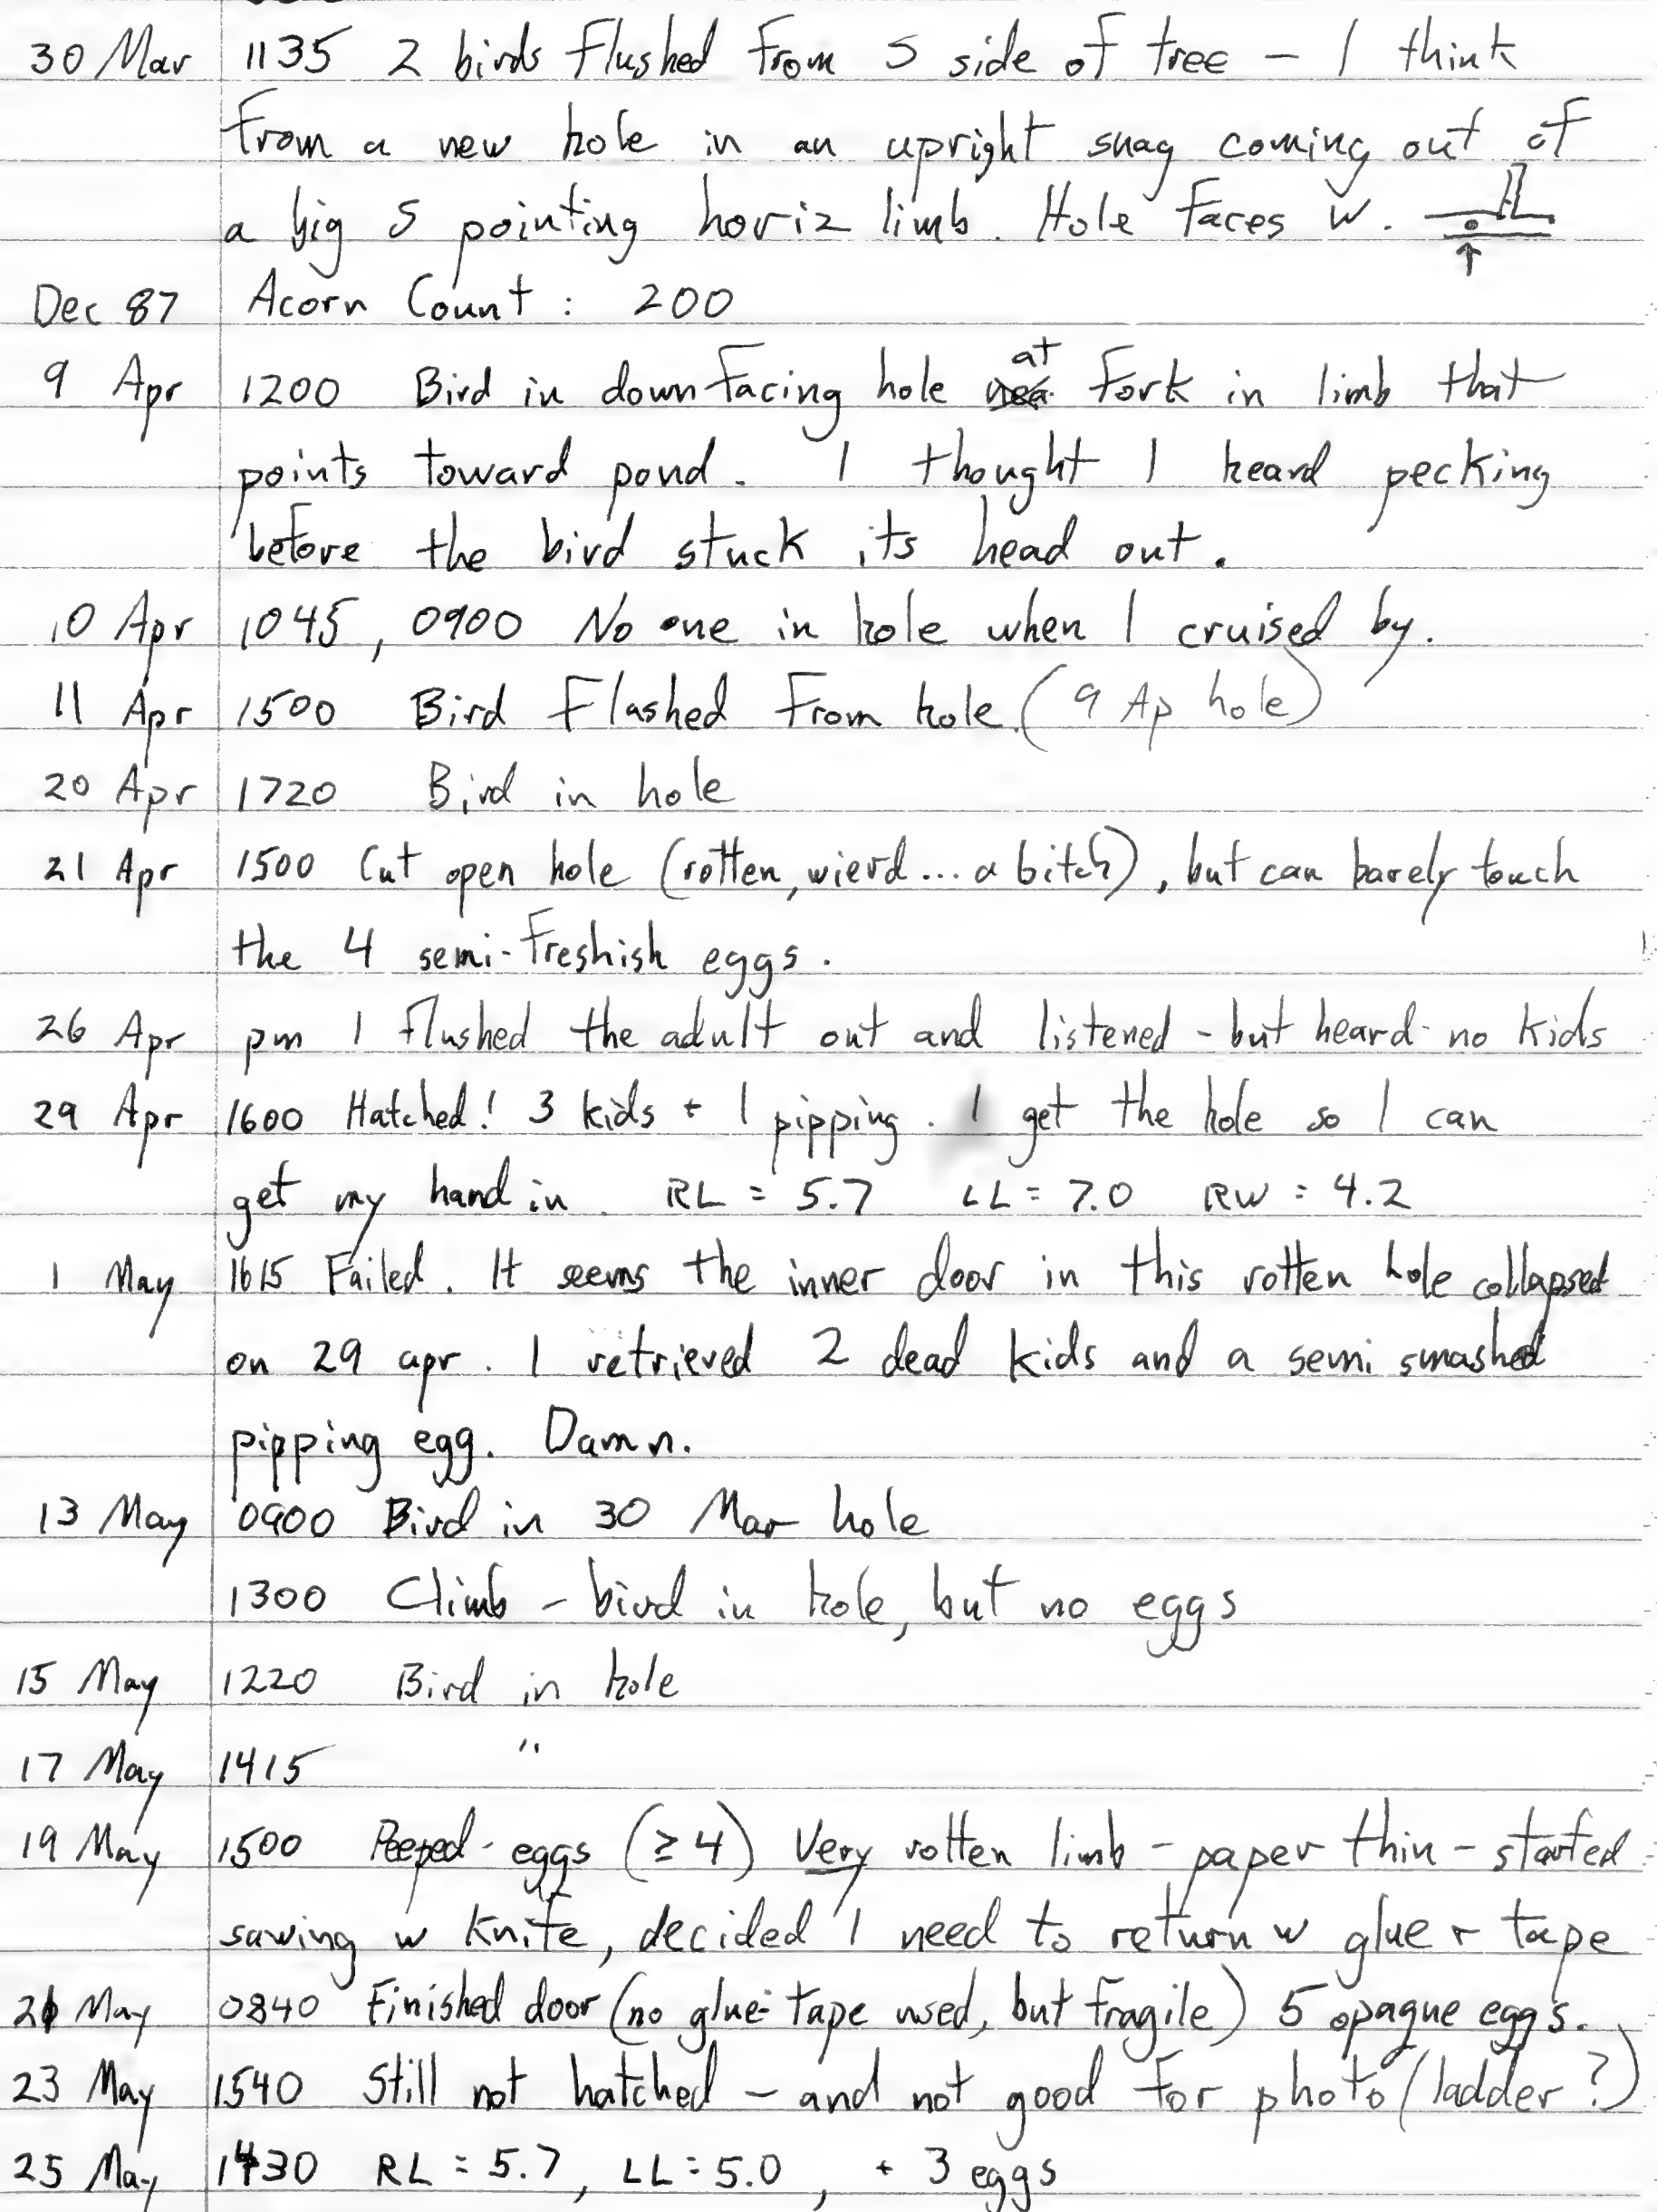 30 Mar 1135 2 birds flushed from S side of tree - I think
from a new hole in an upright snag coming out of
a big S pointing horiz limb. Hole faces W.
Dec 87 Acorn Count : 200
9 Apr 1200 Bird in down facing hole at fork in limb that
points toward pond. I thought I heard pecking
before the bird stuck its head out.
10 Apr 1045, 0900 No one in hole when I cruised by.
11 Apr 1500 Bird Flashed From hole. (9 Ap hole)
20 Apr 1720 Bird in hole
21 Apr 1500 Cut open hole (rotten, wierd... a bitch), but can barely touch
the 4 semi-freshish eggs.
26 Apr pm I flushed the adult out and listened - but heard no kids
29 Apr 1600 Hatched! 3 kids + 1 pipping. I get the hole so I can
get my hand in. RL = 5.7 LL = 7.0 RW = 4.2
1 May 1615 Failed. It seems the inner door in this rotten hole collapsed
on 29 apr. I retrieved 2 dead kids and a semi smashed
pipping egg. Damn.
13 May 0900 Bird in 30 Mar hole
1300 Climb - bird in hole, but no eggs
15 May 1220 Bird in hole
17 May 1415 "
19 May 1500 Peeped - eggs (≥4) Very rotten limb - paper thin - started
sawing w knife, decided I need to return w glue + tape
21 May 0840 Finished door (no glue-tape used, but fragile) 5 opaque eggs.
23 May 1540 Still not hatched - and not good for photo (ladder?)
25 May 1430 RL = 5.7, LL = 5.0, + 3 eggs